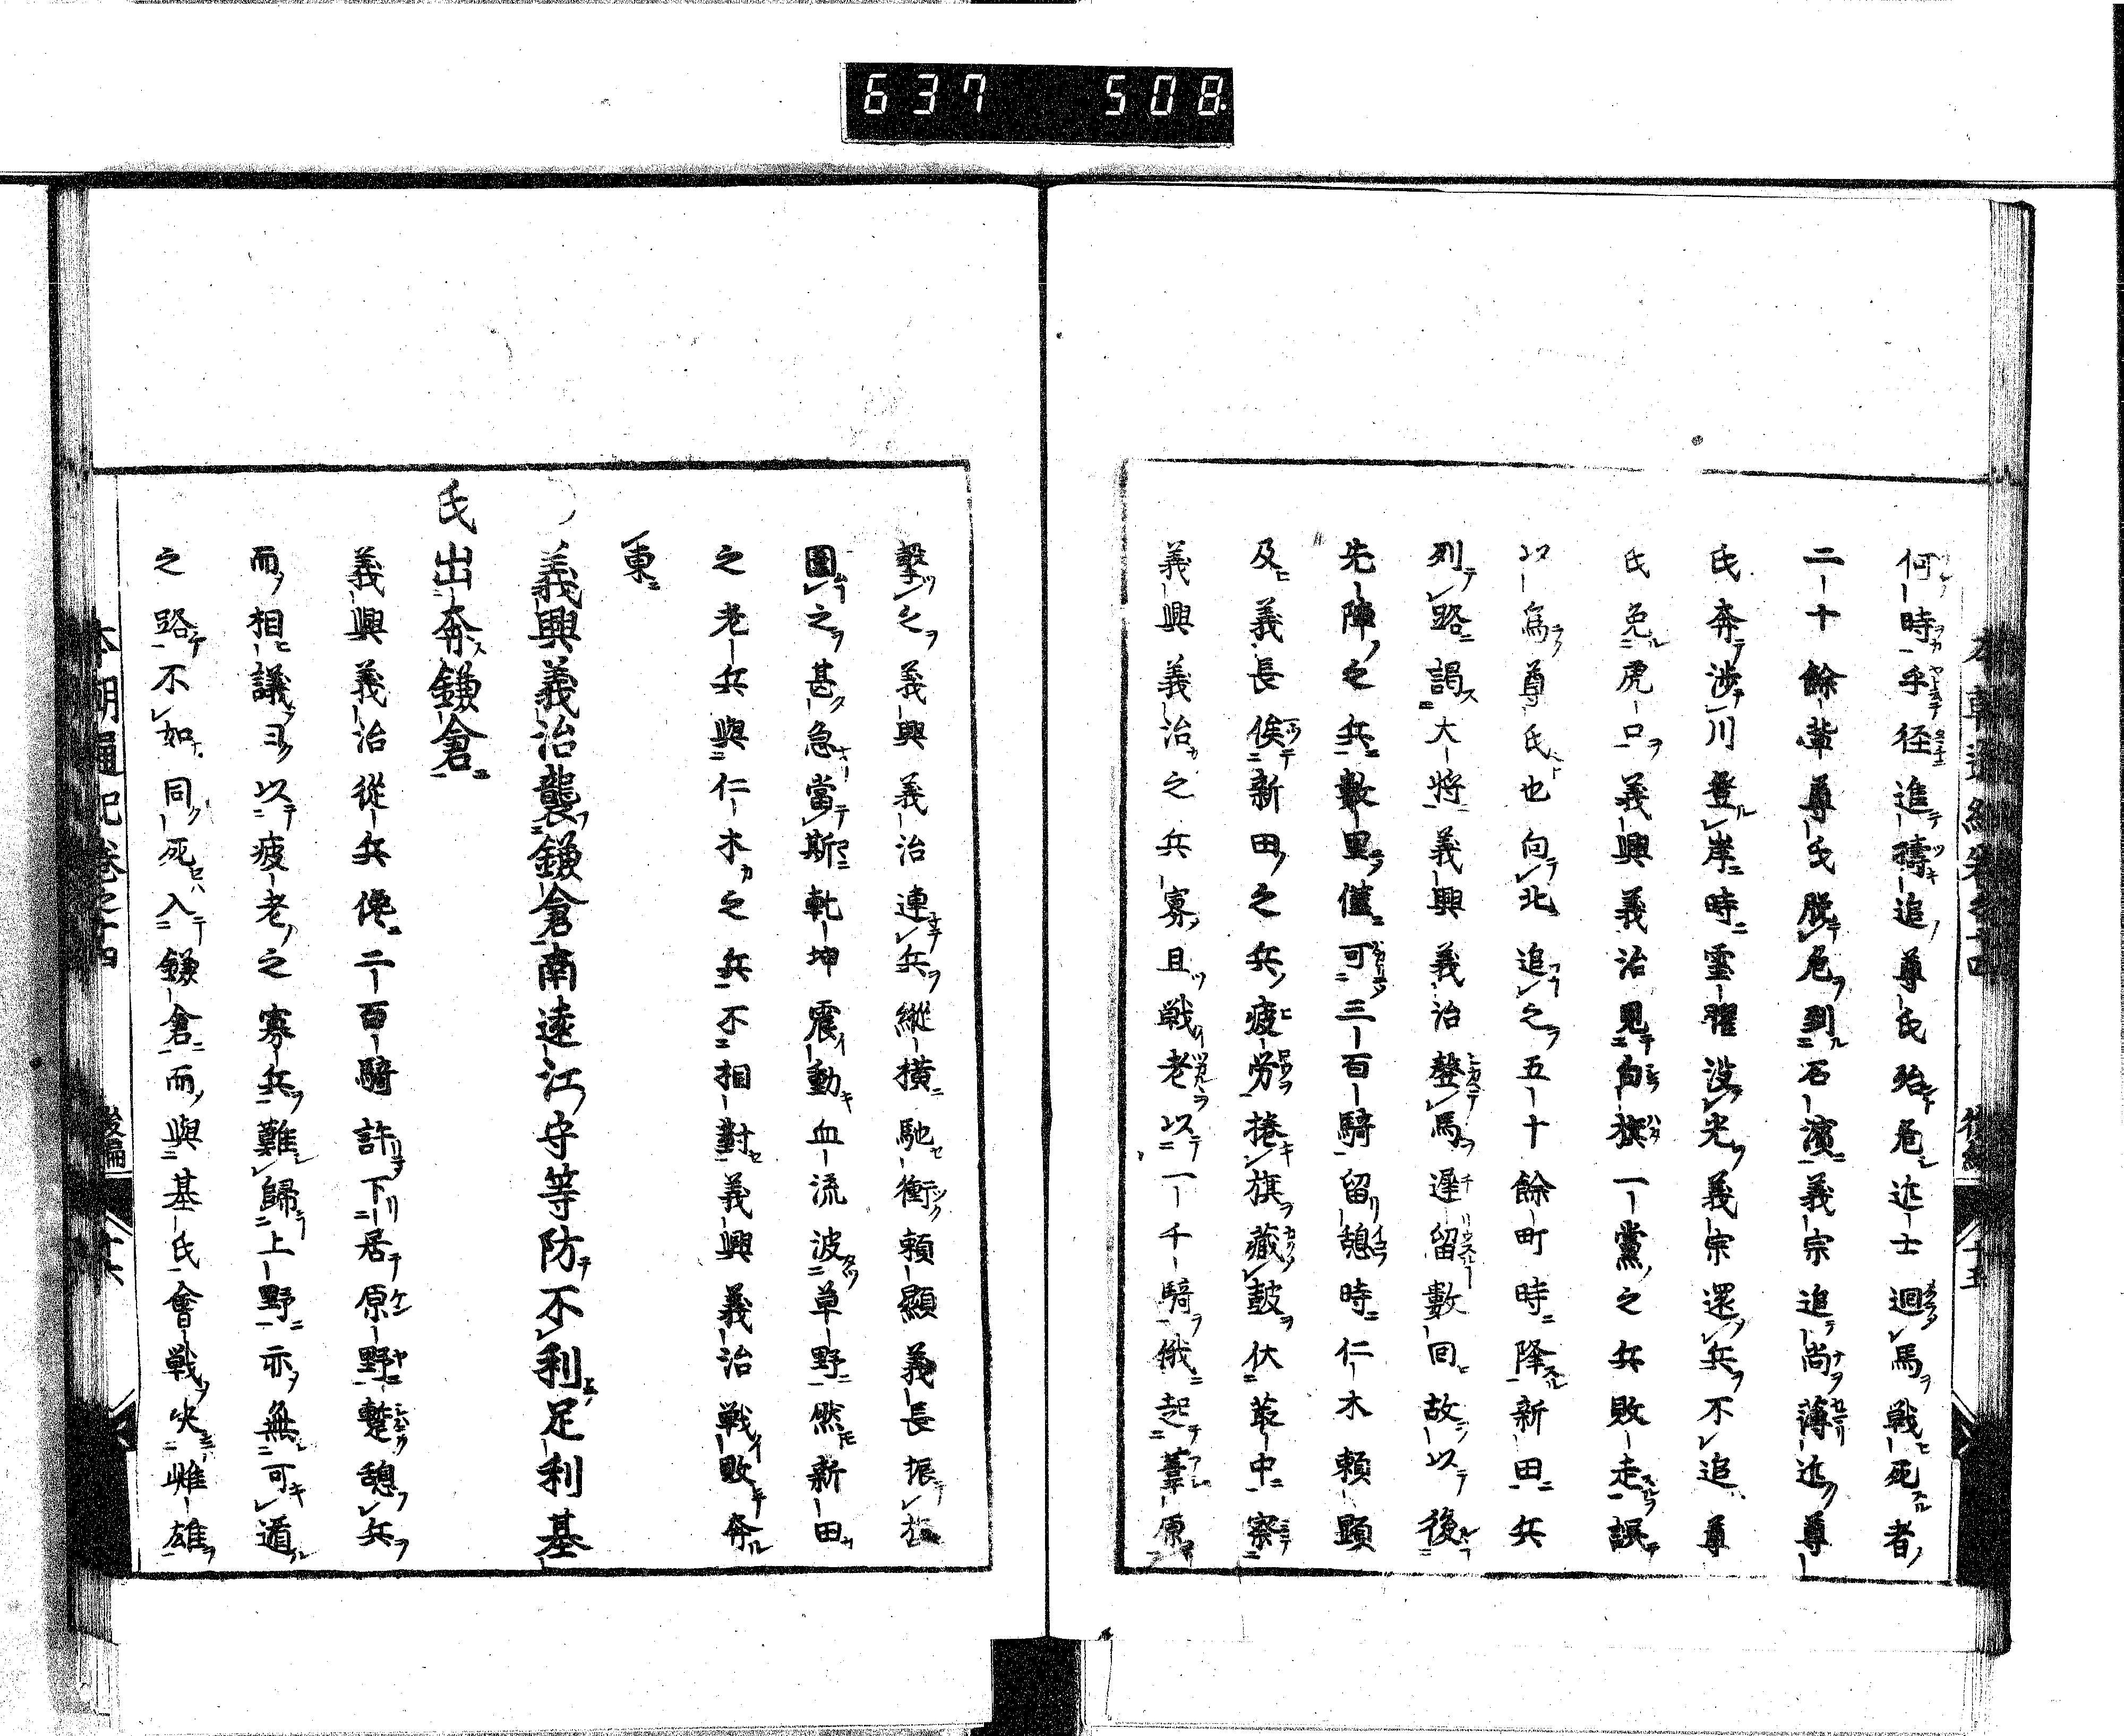 637 508
何時乎径進擣追尊氏殆危近士迴馬戦死者
二十餘輩尊氏脱危到石濱義宗追尚薄近尊
氏奔渉川登岸時霊曜没光義宗還兵不追尊
氏免虎口義興義治見白旗一黨之兵敗走誤
以為尊氏也向北追之五十餘町時降新田兵
列路謁大将義興義治磬馬遅留數回故以後
先陣之兵數里僅可三百騎留憩時仁木頼顕
及義長俟新田之兵疲労捲旗藏鼓伏叢中察
義興義治之兵寡且戦老以一千騎俄起葦原
擊之義興義治連兵縦横馳衝頼顕義長振旗
圍之甚急當斯乾坤震動血流波草野然新田
之老兵與仁木之兵不相對義興義治戦敗奔
東
義興義治襲鎌倉南遠江守等防不利足利基
氏出奔鎌倉
義興義治從兵僅二百騎許下居原野蹔憩兵
而相議曰以疲老之寡兵難歸上野亦無可遁
之路不如同死入鎌倉而與基氏會戦決雌雄
本朝通紀巻之十四 後編 十六